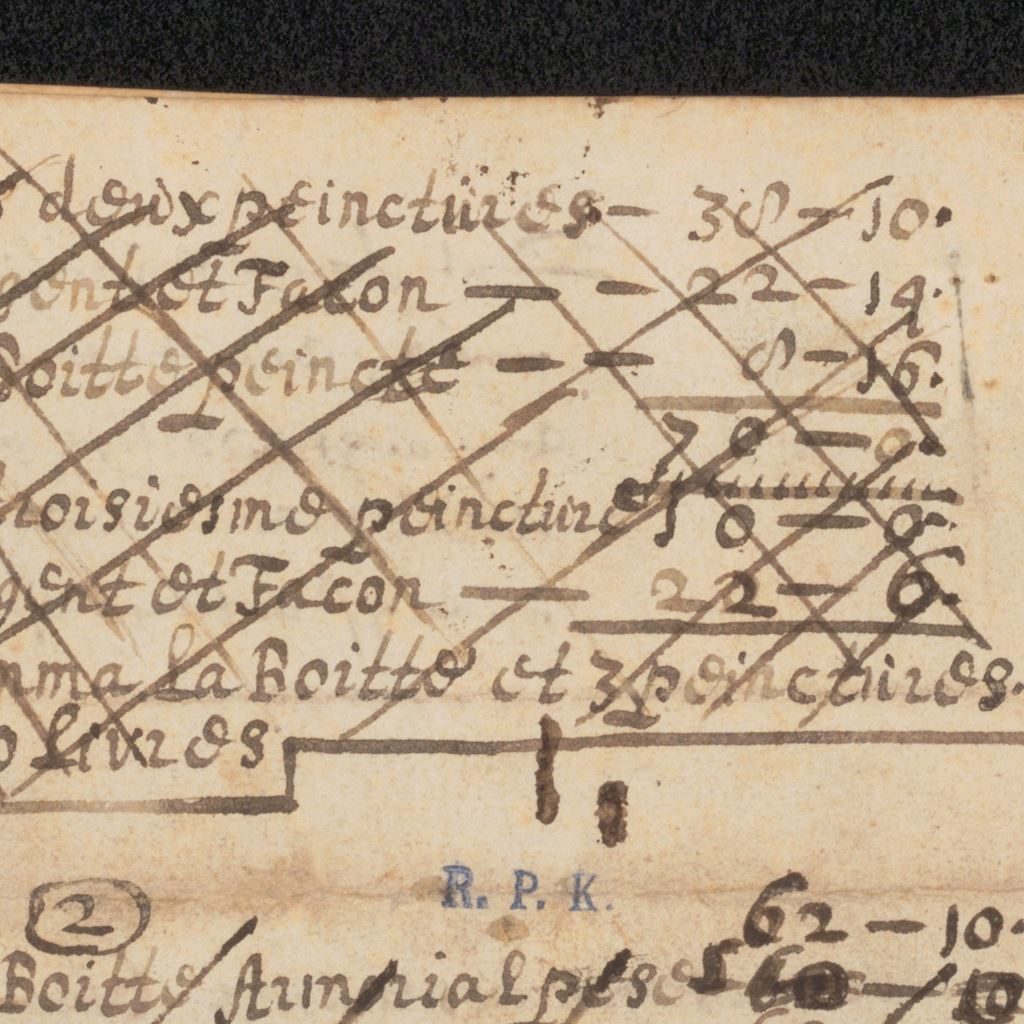 deux peinctures — 38 — 10.
gent et Facon — — 22 — 14.
Boitte peincte — — 8 — 16.
70 — 0.
troisiesme peincture 50 — 0.
gent et Facon — 22 — 6.
mma La Boitte et 3 peinctures.
0 Livres
R. P. K.
2
62 — 10.
Boitte Armorial pese — 10